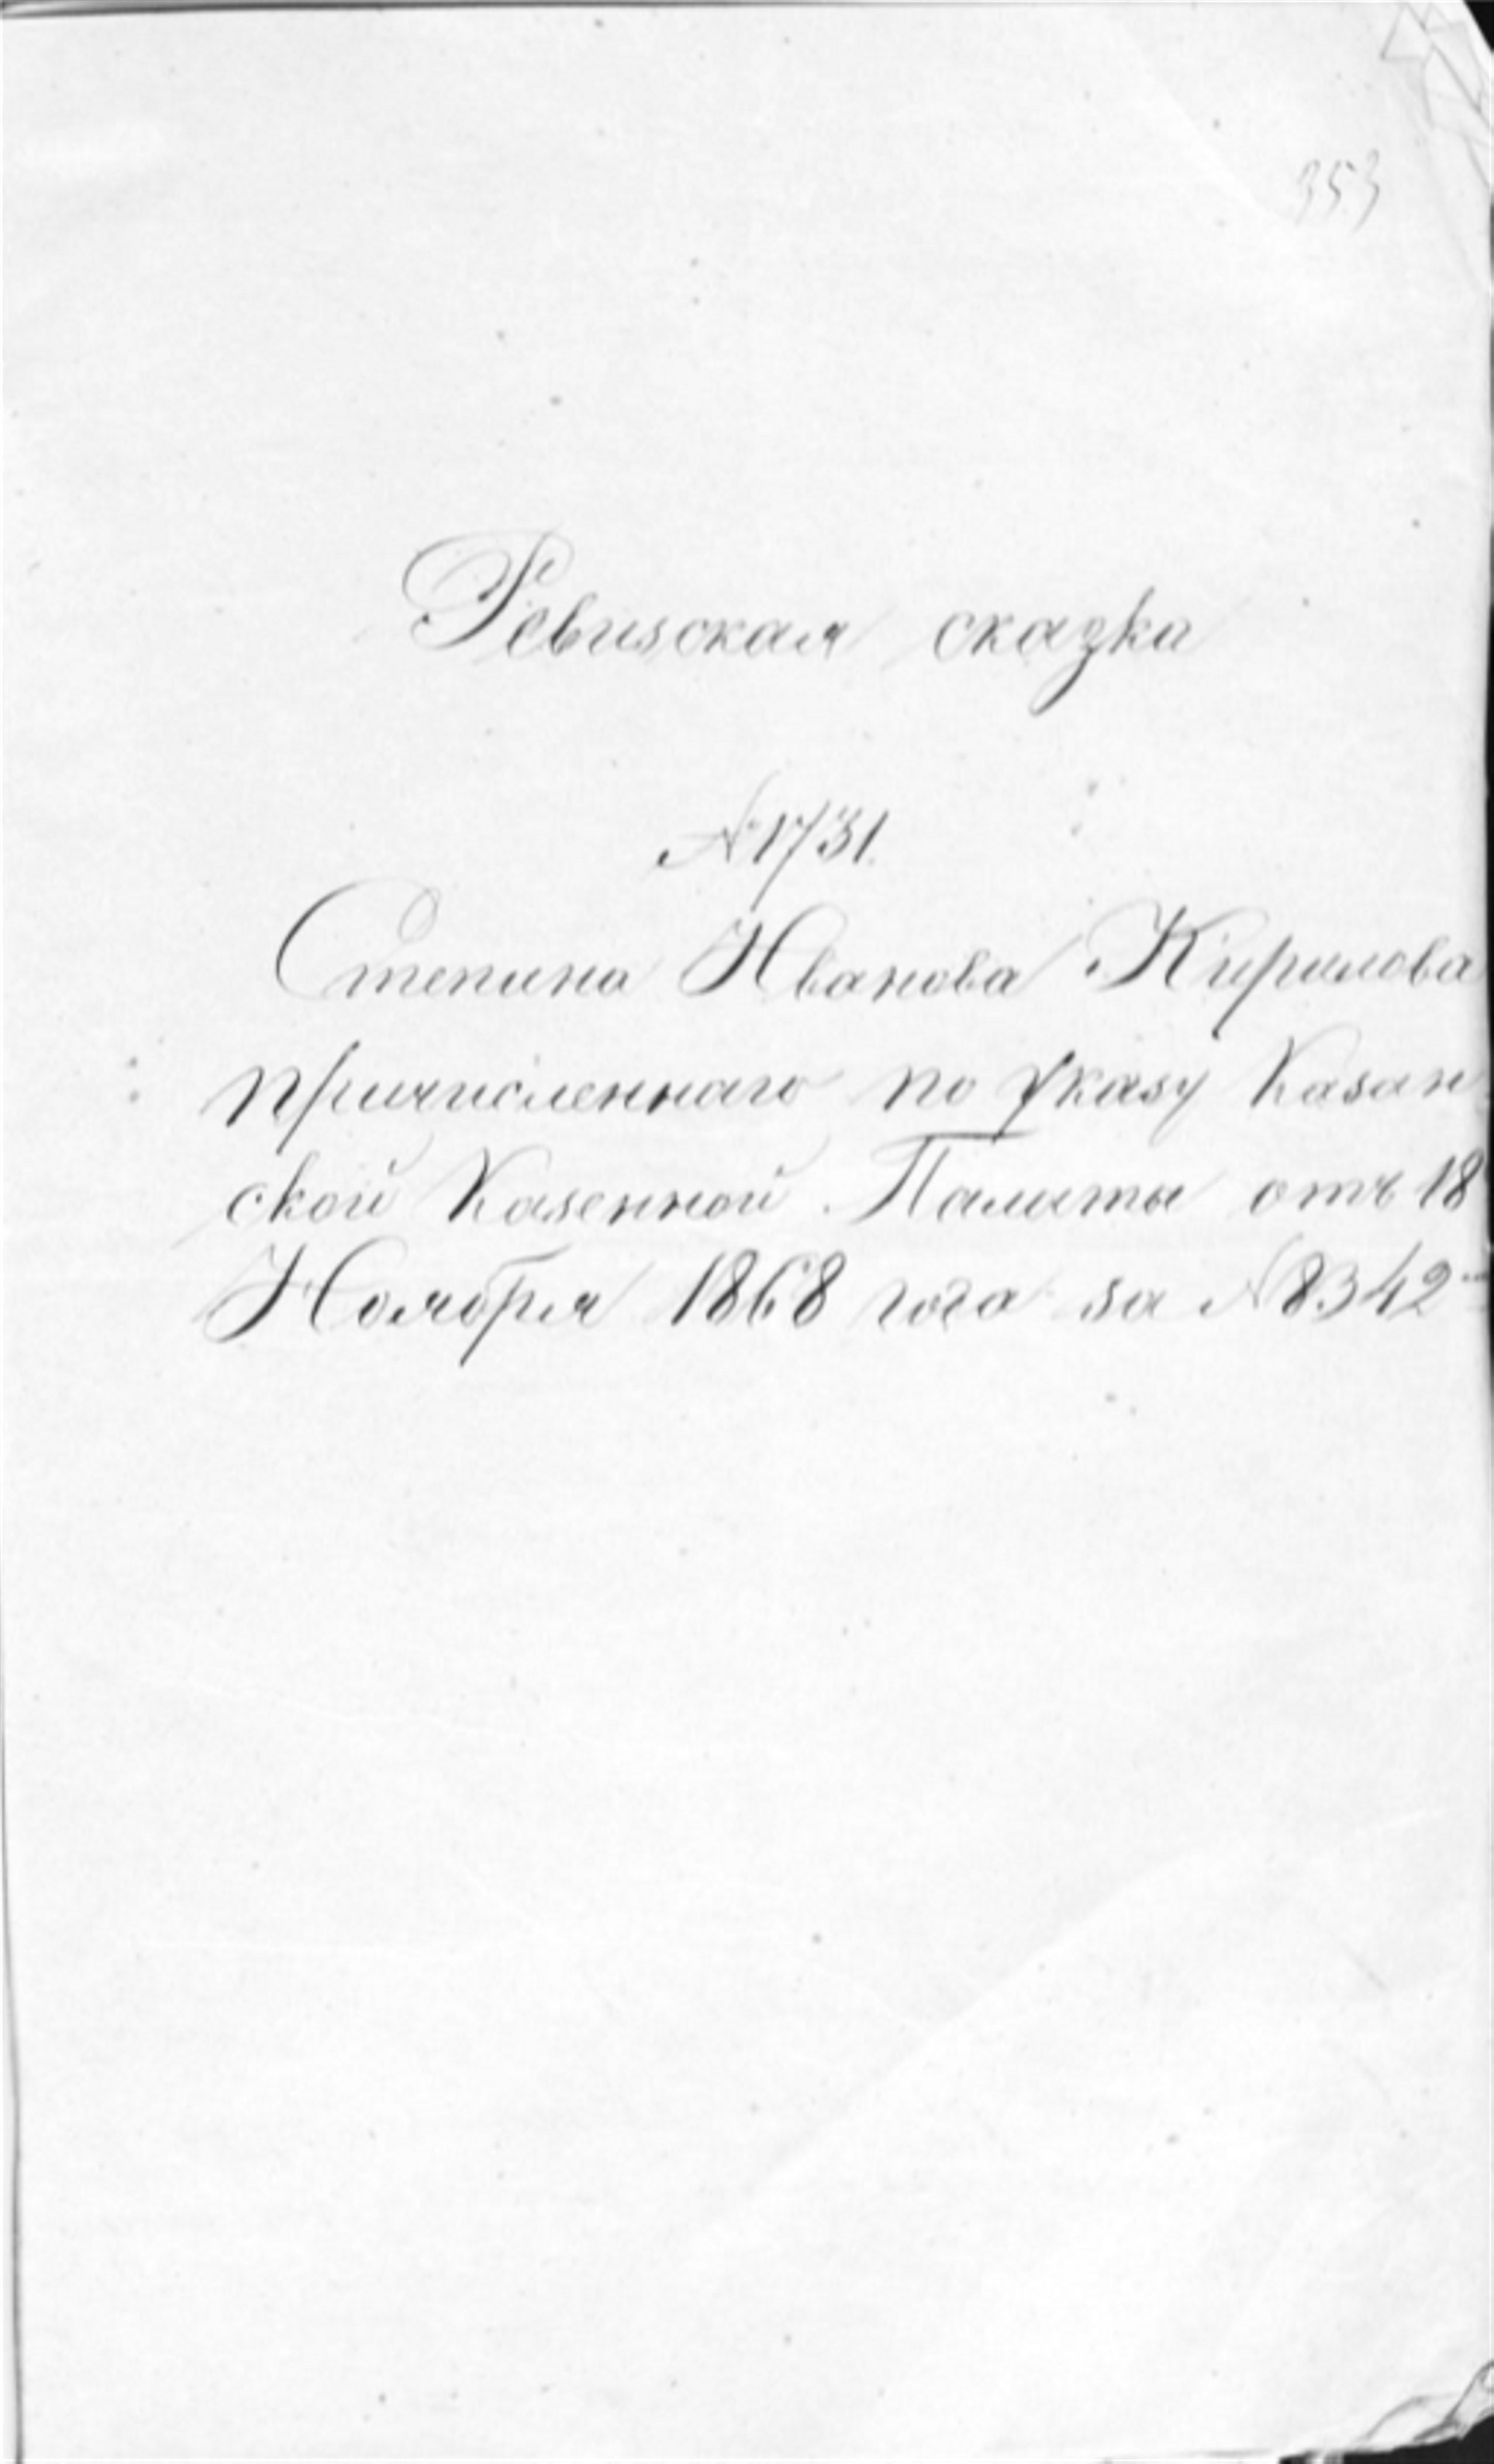 353
Ревизская сказка
№ 1731.
Степана Иванова Кирилова
причисленнаго по указу Казан
ской Казенной Палаты отъ 18
Ноября 1868 года за № 8342